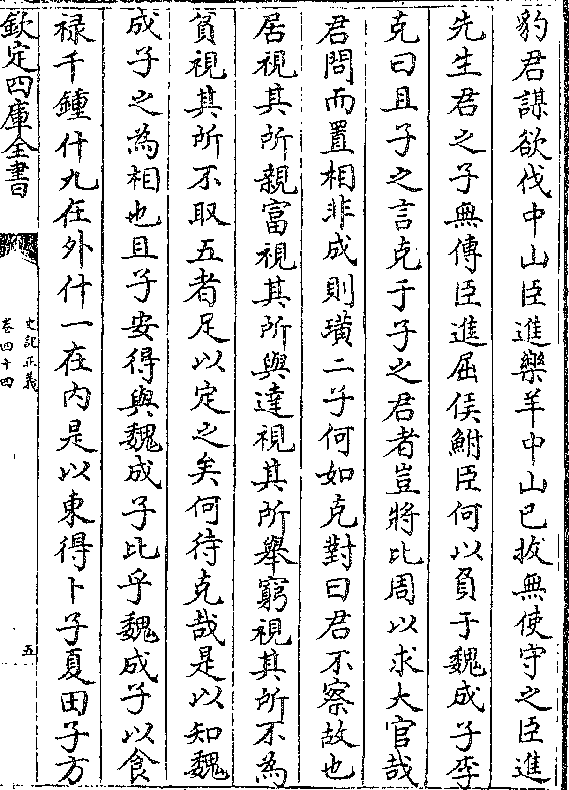 豹君謀欲伐中山臣進樂羊中山已拔無使守之臣進
先生君之子無傅臣進屈侯鮒臣何以負于魏成子李
克曰且子之言克于子之君者豈將比周以求大官哉
君問而置相非成則璜二子何如克對曰君不察故也
居視其所親富視其所與達視其所舉窮視其所不為
貧視其所不取五者足以定之矣何待克哉是以知魏
成子之為相也且子安得與魏成子比乎魏成子以食
禄千鍾什九在外什一在内是以東得卜子夏田子方
欽定四庫全書
史記正義
卷四十四
五